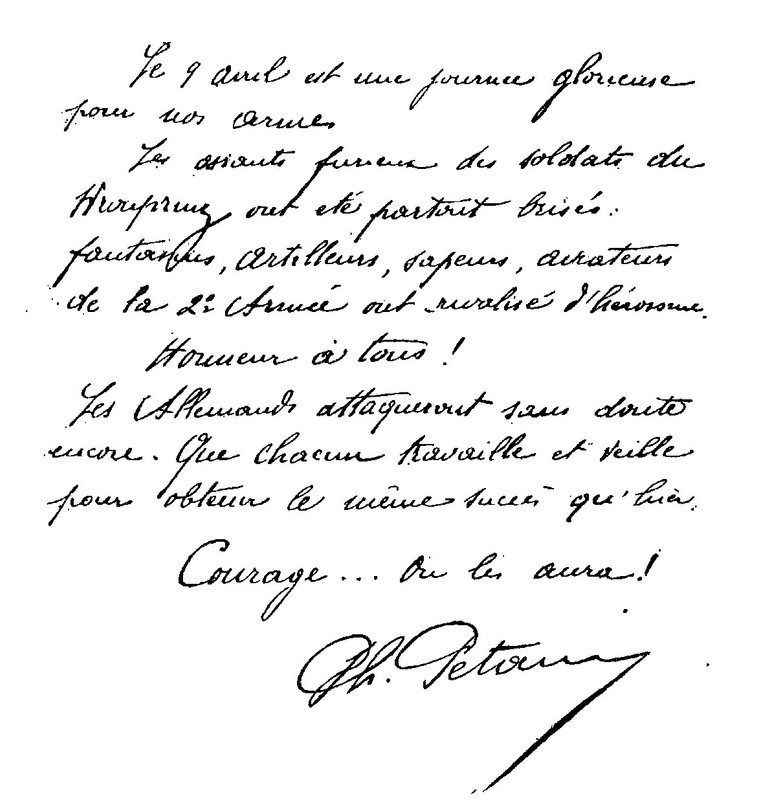 Le 9 avril est une journée glorieuse
pour nos armes
Les assauts furieux des soldats du
Kronprinz ont été partout brisés.
fantassins, artilleurs, sapeurs, aviateurs
de la 2e Armée ont rivalisé d'héroisme.
Honneur à tous !
Les Allemands attaqueront sans doute
encore. Que chacun travaille et veille
pour obtenir le même succès qu'hier.
Courage... On les aura !
Ph. Petain